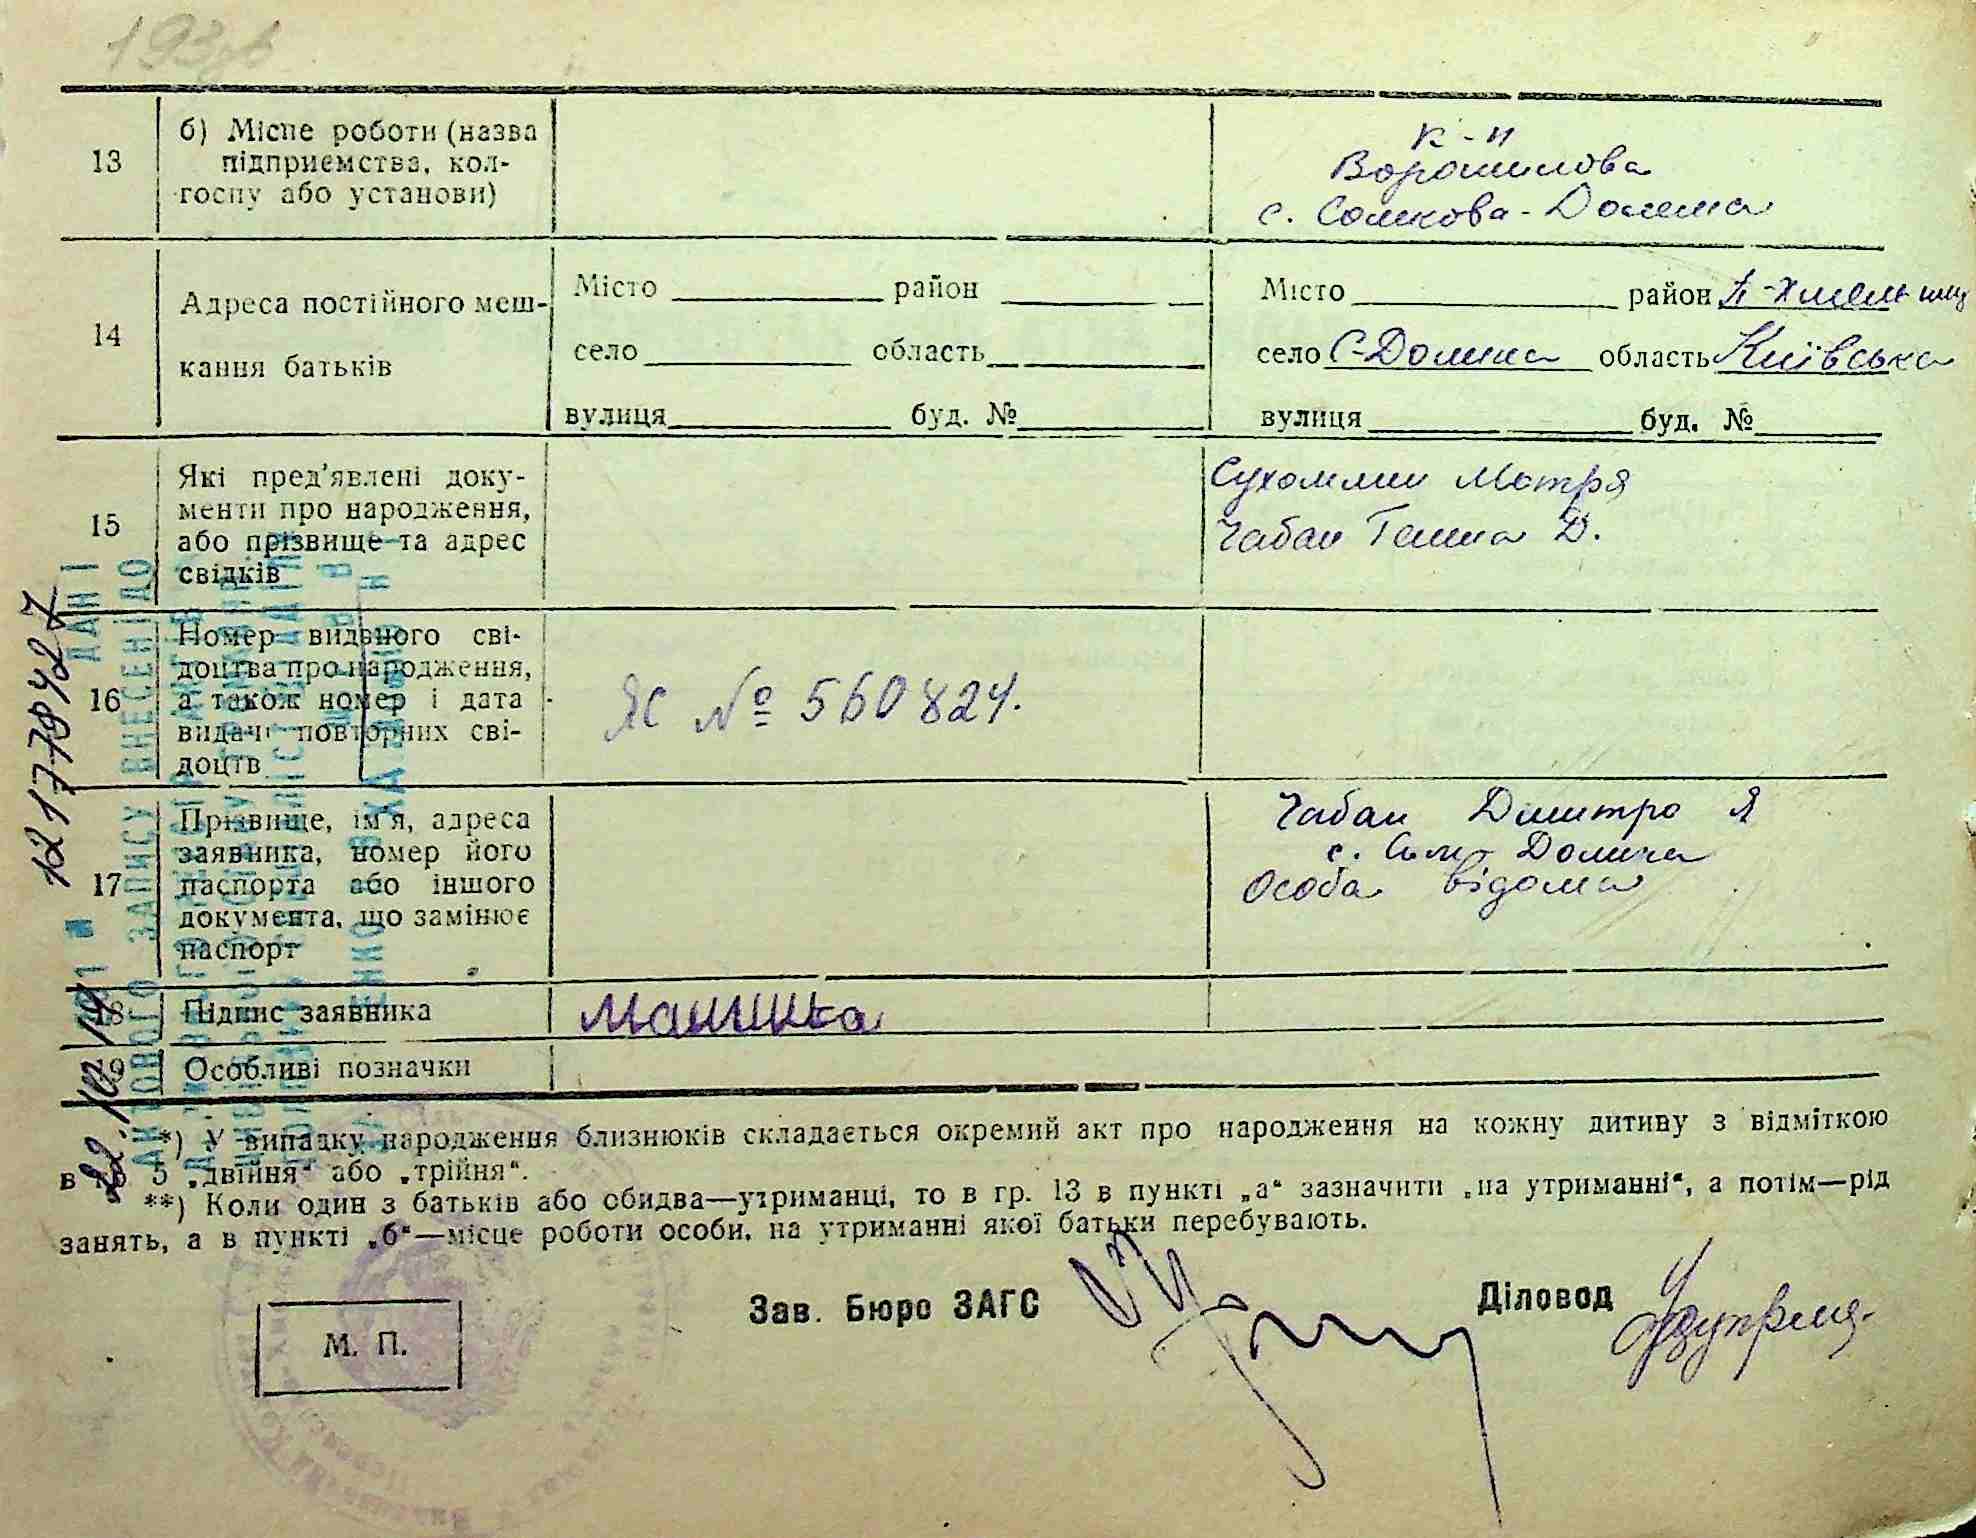 193
13
б) Місце роботи (назва
підприємства, кол-
госпу або установи)
к-п
Ворошилова
с. Сомкова-Долина
14
Адреса постійного меш-
кання батьків
Місто район
село область
вулиця буд. №
Місто район П-Хмельниц
село С-Долина область Київська
вулиця буд. №
15
Які пред'явлені доку-
менти про народження,
або прізвище та адрес
свідків
Сухомлин Мотря
Чабан Ганна Д.
16
Номер виданого сві-
доцтва про народження,
а також номер і дата
видачі повторних сві-
доцтв
ЯС № 560824.
17
Прізвище, ім'я, адреса
заявника, номер його
паспорта або іншого
документа, що замінює
паспорт
Чабан Дмитро Я
с. Сом-Долина
Особа відома
18
Підпис заявника
19
Особливі позначки
*) У випадку народження близнюків складається окремий акт про народження на кожну дитину з відміткою
в гр. 5 „двійня" або „трійня".
**) Коли один з батьків або обидва—утриманці, то в гр. 13 в пункті „а" зазначити „на утриманні", а потім—рід
занять, а в пункті „б"—місце роботи особи, на утриманні якої батьки перебувають.
Зав. Бюро ЗАГС
Діловод
М. П.
ДАНІ
ВНЕСЕНІ ДО
АКТОВОГО ЗАПИСУ